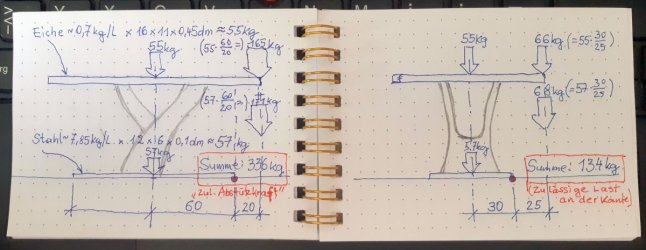 Eiche ~0,7kg/L × 16 × 11 × 0,45dm ≈ 55kg
55kg
(55· 60/20 =) 165kg
(57· 60/20 =)
Stahl ~ 7,85kg/L × 12 × 16 × 0,1dm ≈ 57kg
57kg
Summe: 336kg
"zul. Abstützkraft"
60
20
55kg
66kg (=55· 30/25)
68kg (=57· 30/25)
57kg
Summe: 134kg
(zulässige Last
an der Kante)
30
25